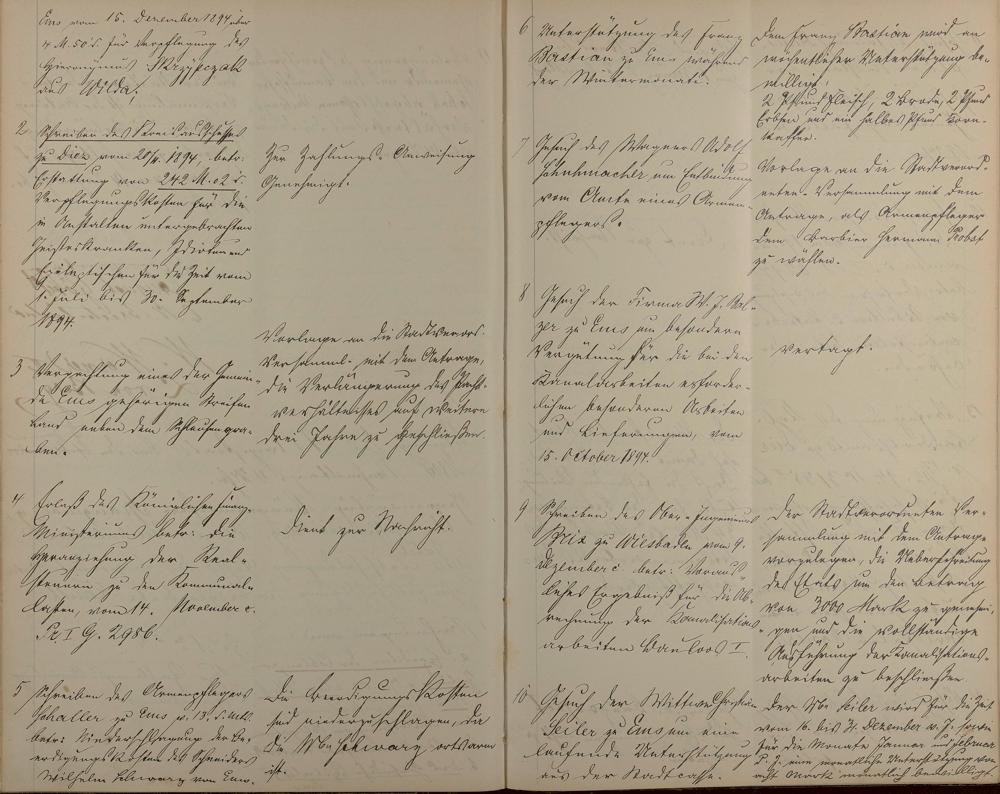 Ems vom 15. Dezember 1894, über
4 M. 50 d. für Verpflegung des
Hieronymus Skrzypczak
aus Wilda;
2 Schreiben des Kreisausschusses
zu Diez vom 20/11. 1894, betr.
Erstattung von 242 M. 02 d.
Verpflegungskosten für die
in Anstalten untergebrachten
Geisteskranken, Idioten und
Epileptischen für die Zeit vom
1. Juli bis 30. September
1894.
Zur Zahlungs-Anweisung
Genehmigt.
3 Verpachtung eines der Gemein-
de Ems gehörigen Streifen
Land neben dem Schlaufengra-
ben.
Vorlage an die Stadtverord.
Versamml. mit dem Antrage,
die Verlängerung des Pacht-
verhältnisses auf weitere
drei Jahre zu beschließen.
4 Erlaß des Königlichen Finanz-
Ministeriums betr. die
Heranziehung der Real-
steuern zu den Kommunal-
lasten, vom 14. November c.
I G. 2986.
Dient zur Nachricht.
5 Schreiben des Armenpflegers
Schaller zu Ems v. 13. d. Mts.
betr. Niederschlagung der Be-
erdigungskosten des Schneiders
Wilhelm Schwarz von Ems.
Die Beerdigungskosten
sind niederzuschlagen, da
die Wwe Schwarz ortsarm
ist.
6 Unterstützung des Franz
Bastian zu Ems während
der Wintermonate.
Dem Franz Bastian wird an
wöchentlicher Unterstützung be-
willigt:
2 Pfund Fleisch, 2 Brode, 2 Pfund
Erbsen und ein halbes Pfund Korn-
kaffee.
7 Gesuch des Wagners Adolf
um Entbindung
vom Amte eines Armen-
pflegers.
Vorlage an die Stadtverord-
neten-Versammlung mit dem
Antrage, als Armenpfleger
dem Barbier Hermann Probst
zu wählen.
8 Gesuch der Firma W. J. Bal-
zer zu Ems um besondere
Vergütung für die bei den
Kanalarbeiten erforder-
lichen besonderen Arbeiten
und Lieferungen, vom
15. October 1894.
Vertagt.
9 Schreiben des Ober-Ingenieurs
Brix zu Wiesbaden vom 9.
Dezember c betr. Voraus-
liches Ergebniß für die Ab-
rechnung der Kanalisations-
arbeiten Bauloos I.
Der Stadtverordneten Ver-
sammlung mit dem Antrage
vorzulegen, die Ueberschreitung
des Etats um den Betrag
von 3000 Mark zu genehmi-
gen und die vollständige
Ausführung der Kanalisations-
arbeiten zu beschließen.
10 Gesuch der Wittwe Christian
Seiler zu Ems um eine
laufende Unterstützung
aus der Stadtcasse.
Der Wwe Seiler wird für die Zeit
vom 16. bis 31. Dezember v. J. sowie
für die Monate Januar und Februar
d. J. eine monatliche Unterstützung von
acht Mark monatlich bewilligt.